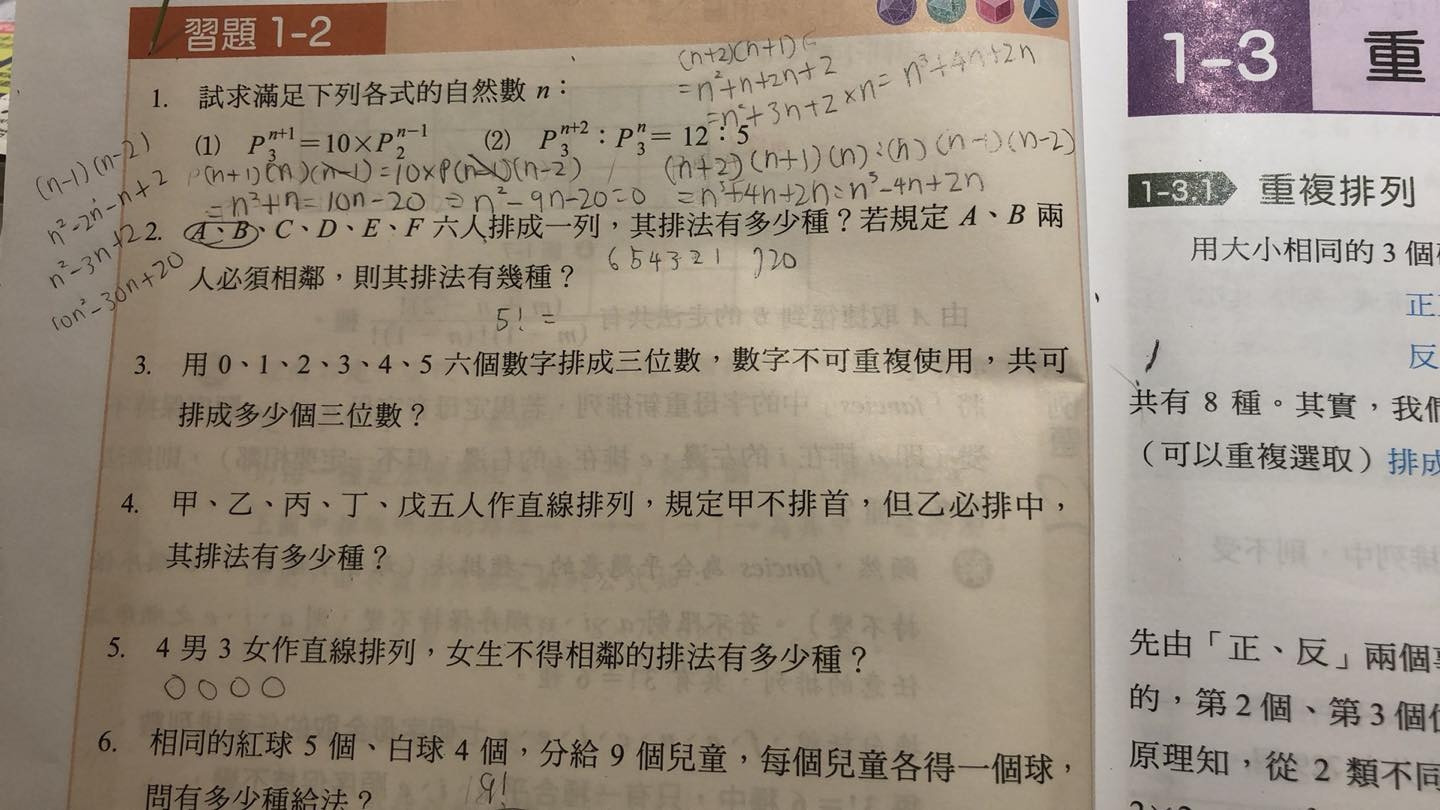 習題 1-2
(n+2)(n+1)
=n²+n+2n+2
=n²+3n+2×n=n³+4n+2n
1. 試求滿足下列各式的自然數 n：
(1) P₃ⁿ⁺¹=10×P₂ⁿ⁻¹ (2) P₃ⁿ⁺²：P₃ⁿ=12：5
P(n+1)(n)(n-1)=10×P(n-1)(n-2)
(n+2)(n+1)(n):(n)(n-1)(n-2)
=n²+n=10n-20⇒n²-9n-20=0
=n³+4n+2n:n³-4n+2n
(n-1)(n-2)
n²-2n-n+2
n²-3n+2
10n²-30n+20
2. A、B、C、D、E、F 六人排成一列，其排法有多少種？若規定 A、B 兩
人必須相鄰，則其排法有幾種？
654321 720
5!=
3. 用 0、1、2、3、4、5 六個數字排成三位數，數字不可重複使用，共可
排成多少個三位數？
4. 甲、乙、丙、丁、戊五人作直線排列，規定甲不排首，但乙必排中，
其排法有多少種？
5. 4 男 3 女作直線排列，女生不得相鄰的排法有多少種？
6. 相同的紅球 5 個、白球 4 個，分給 9 個兒童，每個兒童各得一個球，
問有多少種給法？
9!
1-3 重
1-3.1 重複排列
用大小相同的 3 個
正
反
共有 8 種。其實，我們
（可以重複選取）排成
先由「正、反」兩個
的，第 2 個、第 3 個
原理知，從 2 類不同